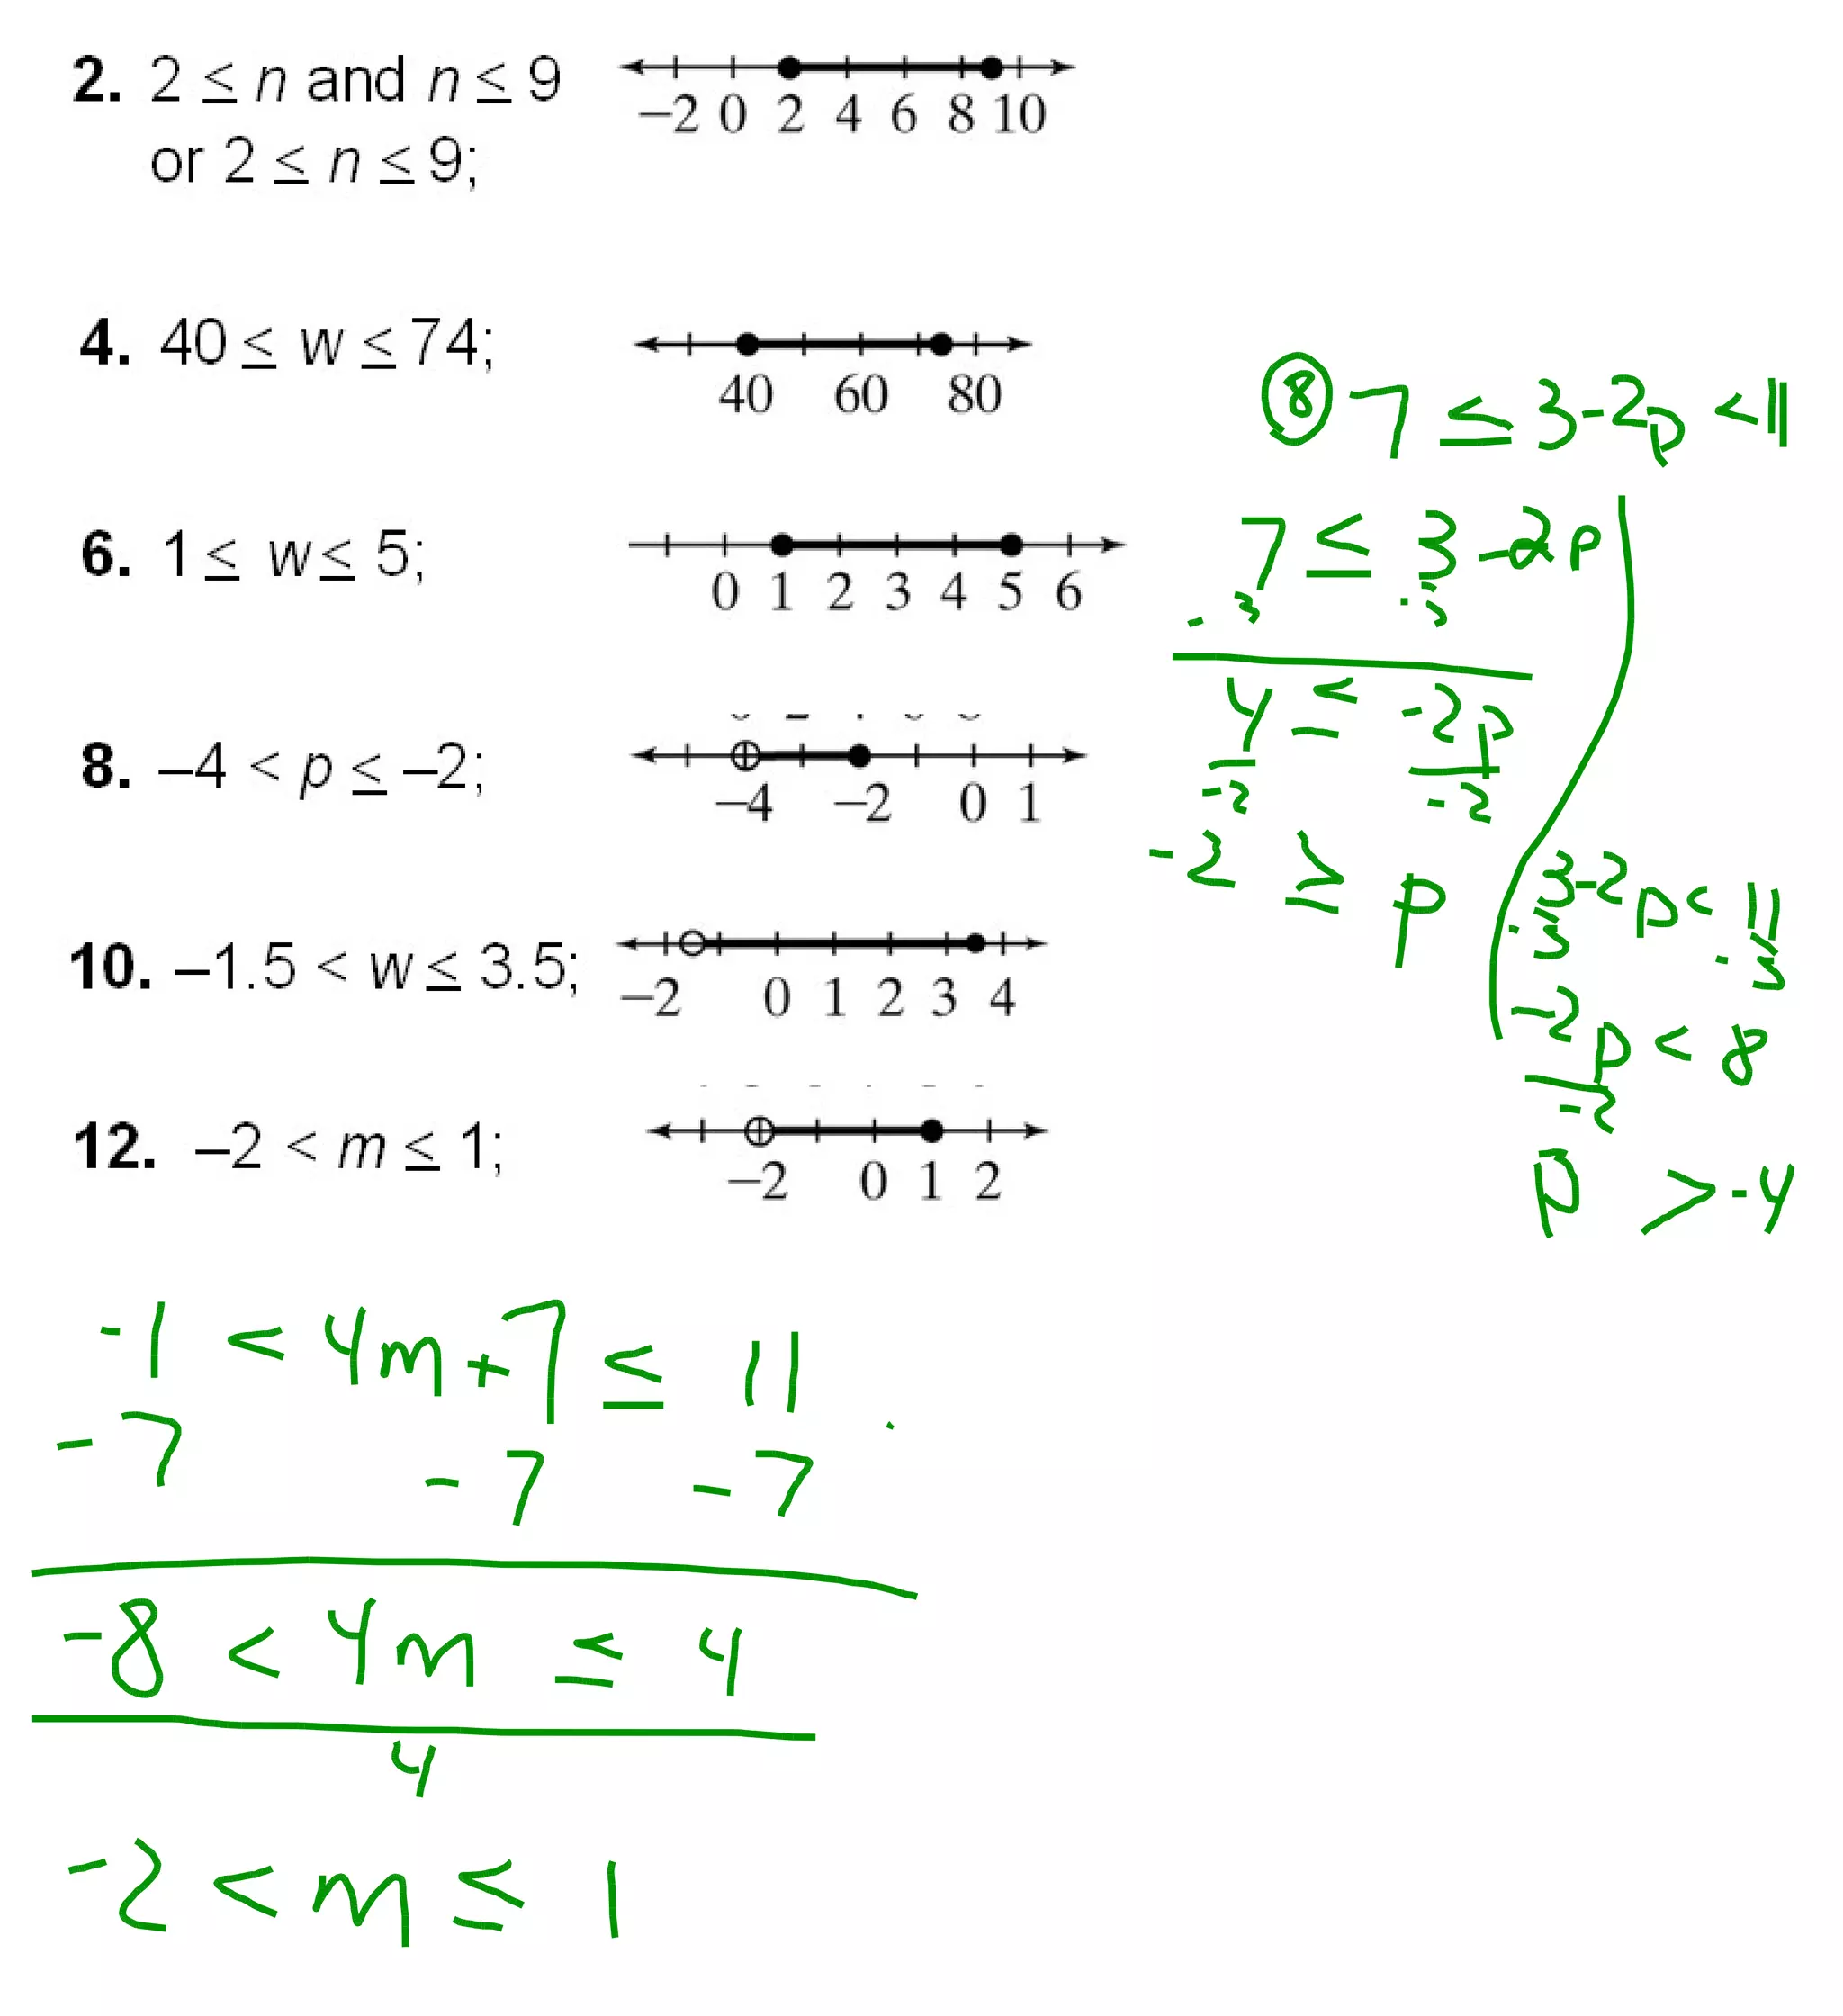 2. 2 ≤ n and n ≤ 9
–2 0 2 4 6 8 10
or 2 ≤ n ≤ 9;
4. 40 ≤ w ≤ 74;
40 60 80
6. 1 ≤ w ≤ 5;
0 1 2 3 4 5 6
8. –4 < p ≤ –2;
–4 –2 0 1
10. –1.5 < w ≤ 3.5;
–2 0 1 2 3 4
12. –2 < m ≤ 1;
–2 0 1 2
8 7 ≤ 3-2p < 11
7 ≤ 3 -2p
-3 -3
4 ≤ -2p
-2 -2
-2 ≥ p
3-2p < 11
-3 -3
-2p < 8
-2
p > -4
-1 < 4m+7 ≤ 11
-7 -7 -7
-8 < 4m ≤ 4
4
-2 < m ≤ 1